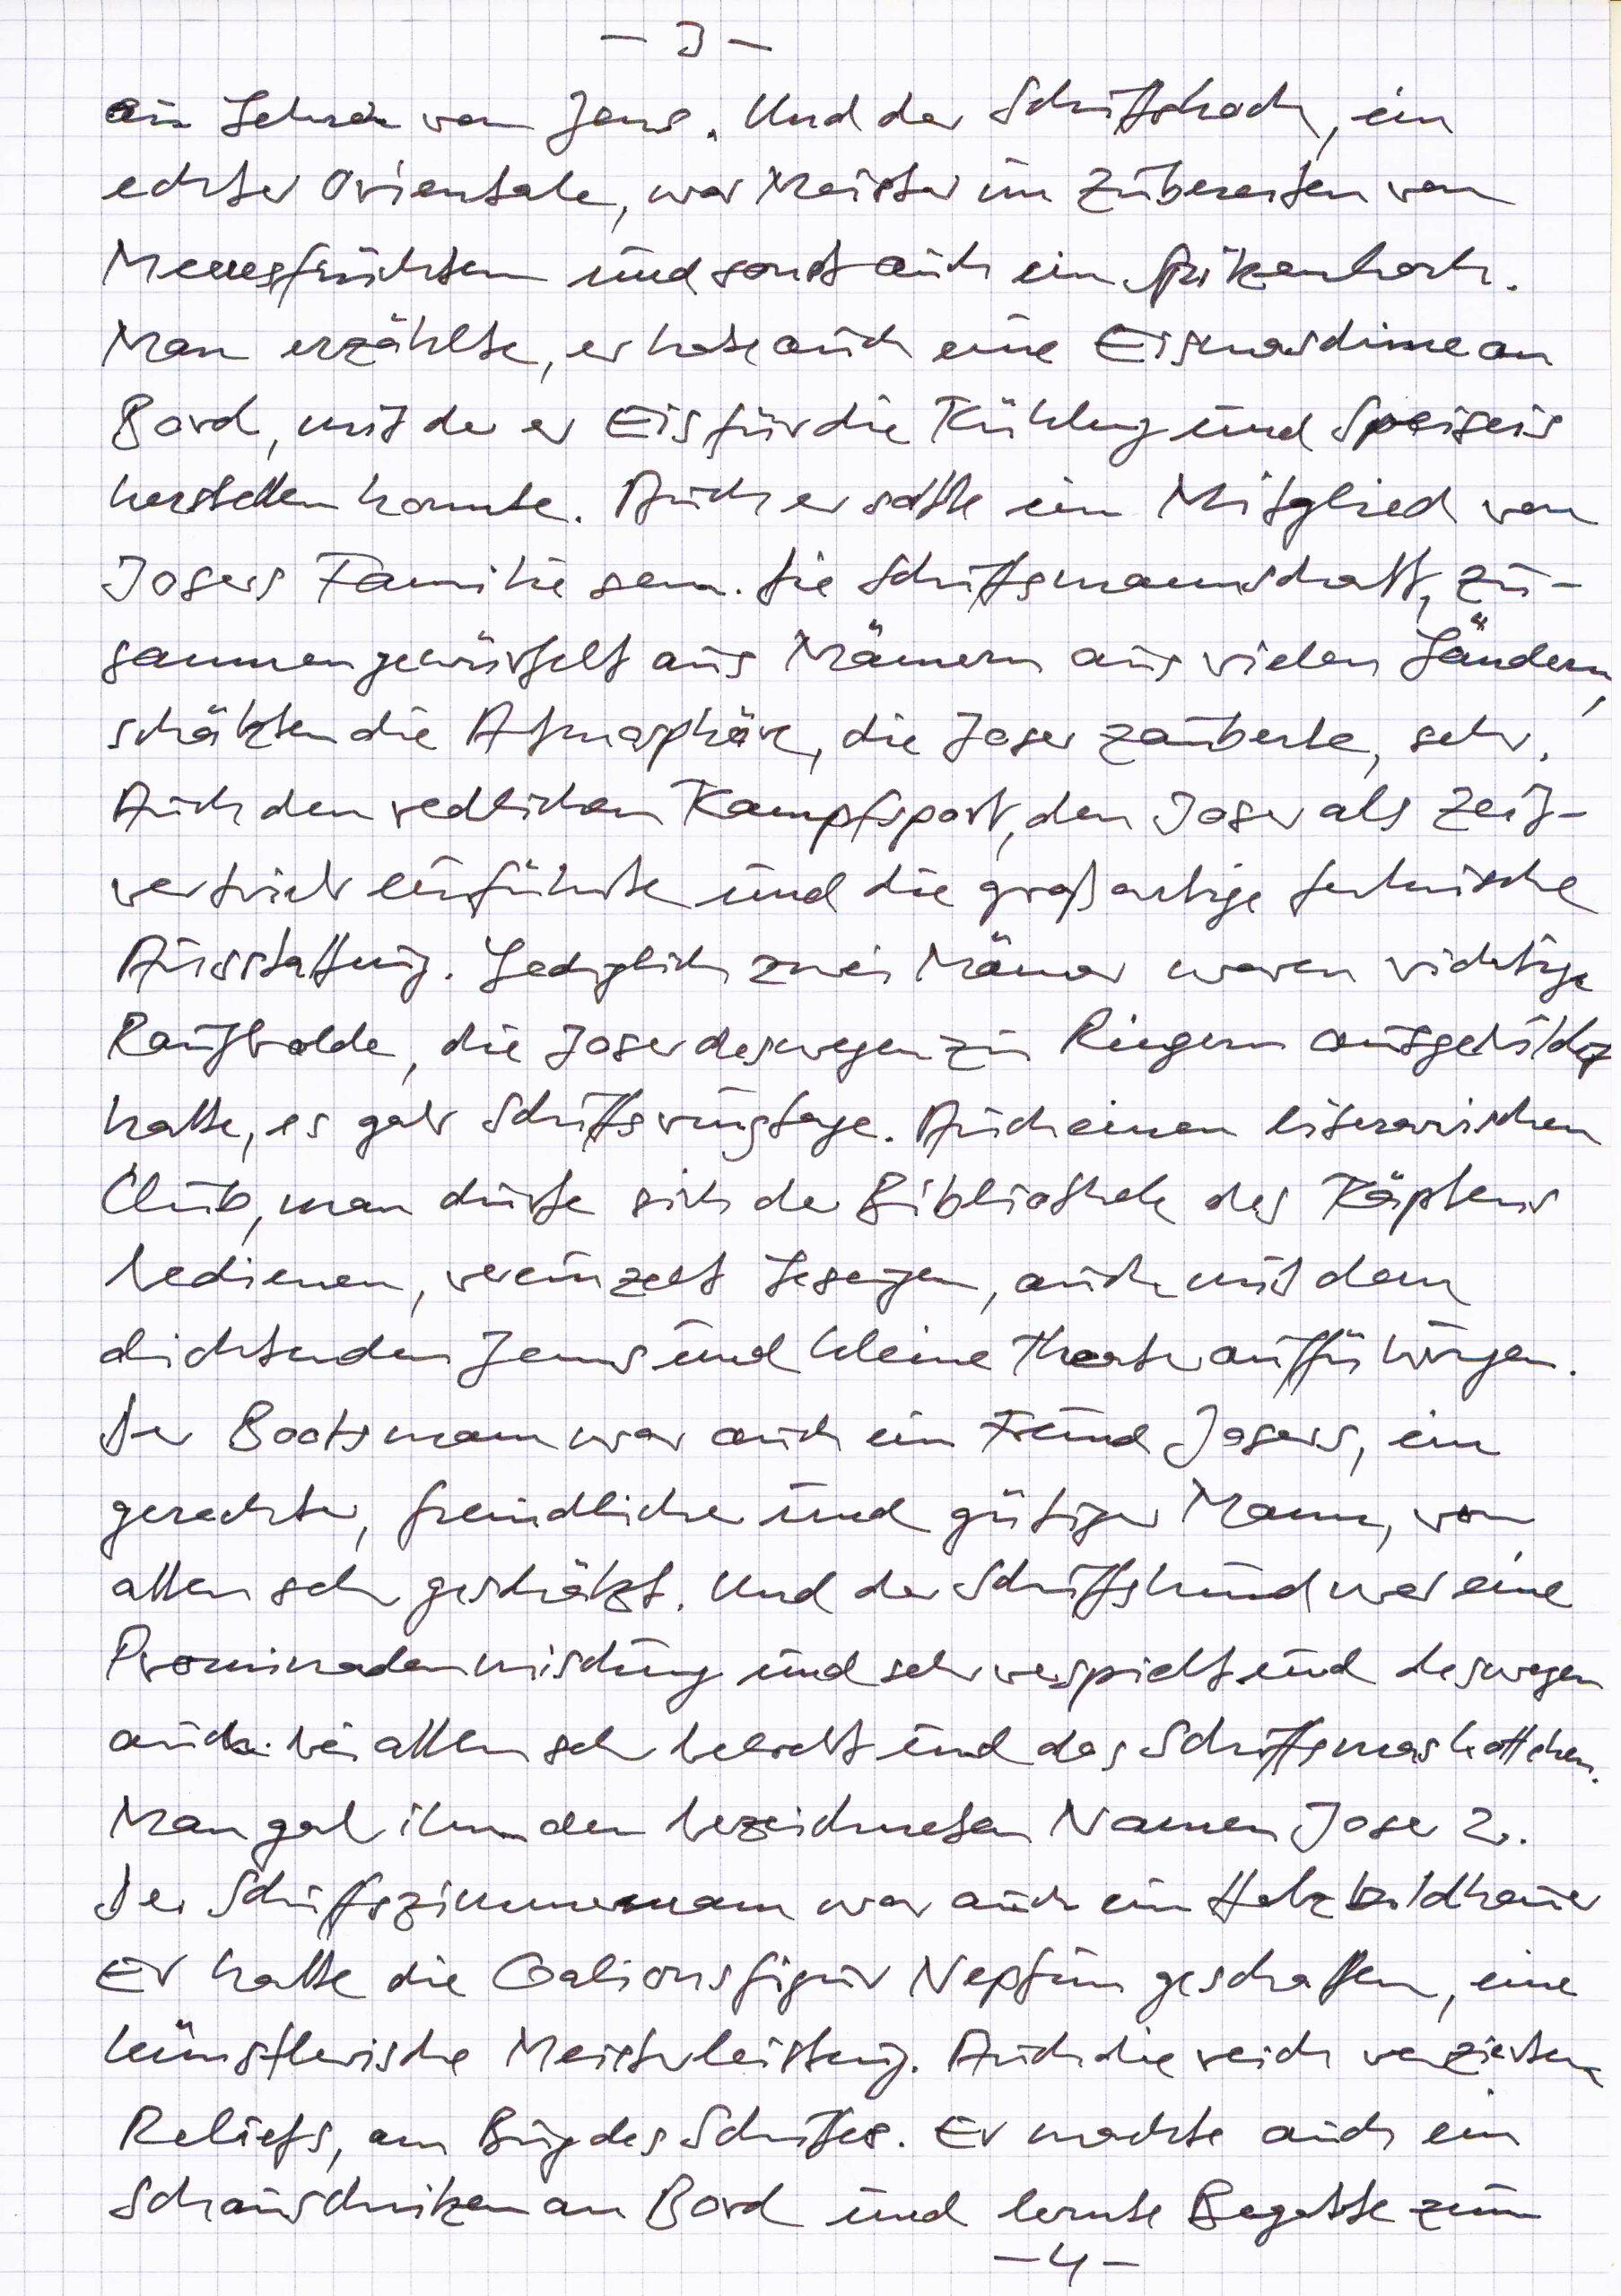 - 3 -
ein Lehrer von Jens. Und der Schiffskoch, ein
echter Orientale, war Meister im Zubereiten von
Meeresfrüchten und sonst auch ein Spitzenkoch.
Man erzählte, er habe auch eine Eismaschine an
Bord, mit der er Eis für die Kühlung und Speiseis
herstellen konnte. Auch er sollte ein Mitglied von
Josers Familie sein. Die Schiffsmannschaft, zu-
sammengewürfelt aus Männern aus vielen Ländern,
schätzten die Atmosphäre, die Joser zauberte, sehr.
Auch den redlichen Kampfsport, den Joser als Zeit-
vertrieb einführte und die großartige technische
Ausstattung. Lediglich zwei Männer waren richtige
Raufbolde, die Joser deswegen zu Ringern ausgebildet
hatte, es gab Schiffsringtage. Auch einen literarischen
Club, man durfte sich der Bibliothek des Käptens
bedienen, vereinzelt Lesungen, auch mit dem
dichtenden Jens und kleine Theateraufführungen.
Der Bootsmann war auch ein Freund Josers, ein
gerechter, freundlicher und gütiger Mann, von
allen sehr geschätzt. Und der Schiffshund war eine
Prominadenmischung und sehr verspielt und deswegen
auch bei allen sehr beliebt und das Schiffsmaskottchen.
Man gab ihm den bezeichneten Namen Joser 2.
Der Schiffszimmermann war auch ein Holzbildhauer
Er hatte die Galionsfigur Neptun geschaffen, eine
künstlerische Meisterleistung. Auch die reich verzierten
Reliefs, am Bug des Schiffes. Er machte auch ein
Schauschnitzen an Bord und lernte Begabte zum
- 4 -